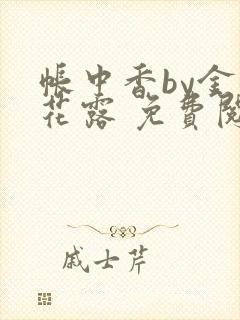 帳中香by金
花露 免費閱
戚士芹